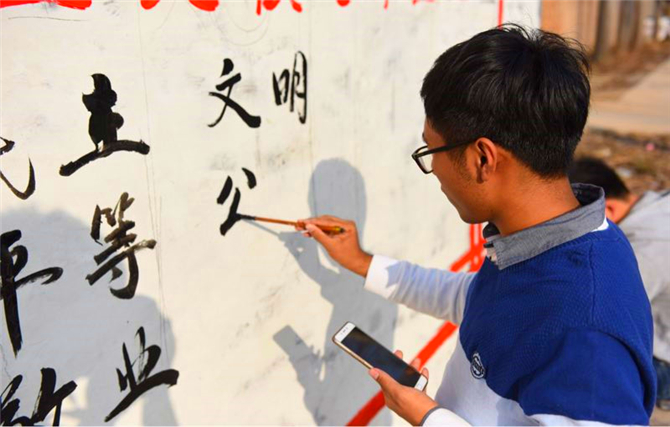 主 文明
平等 公
敬业